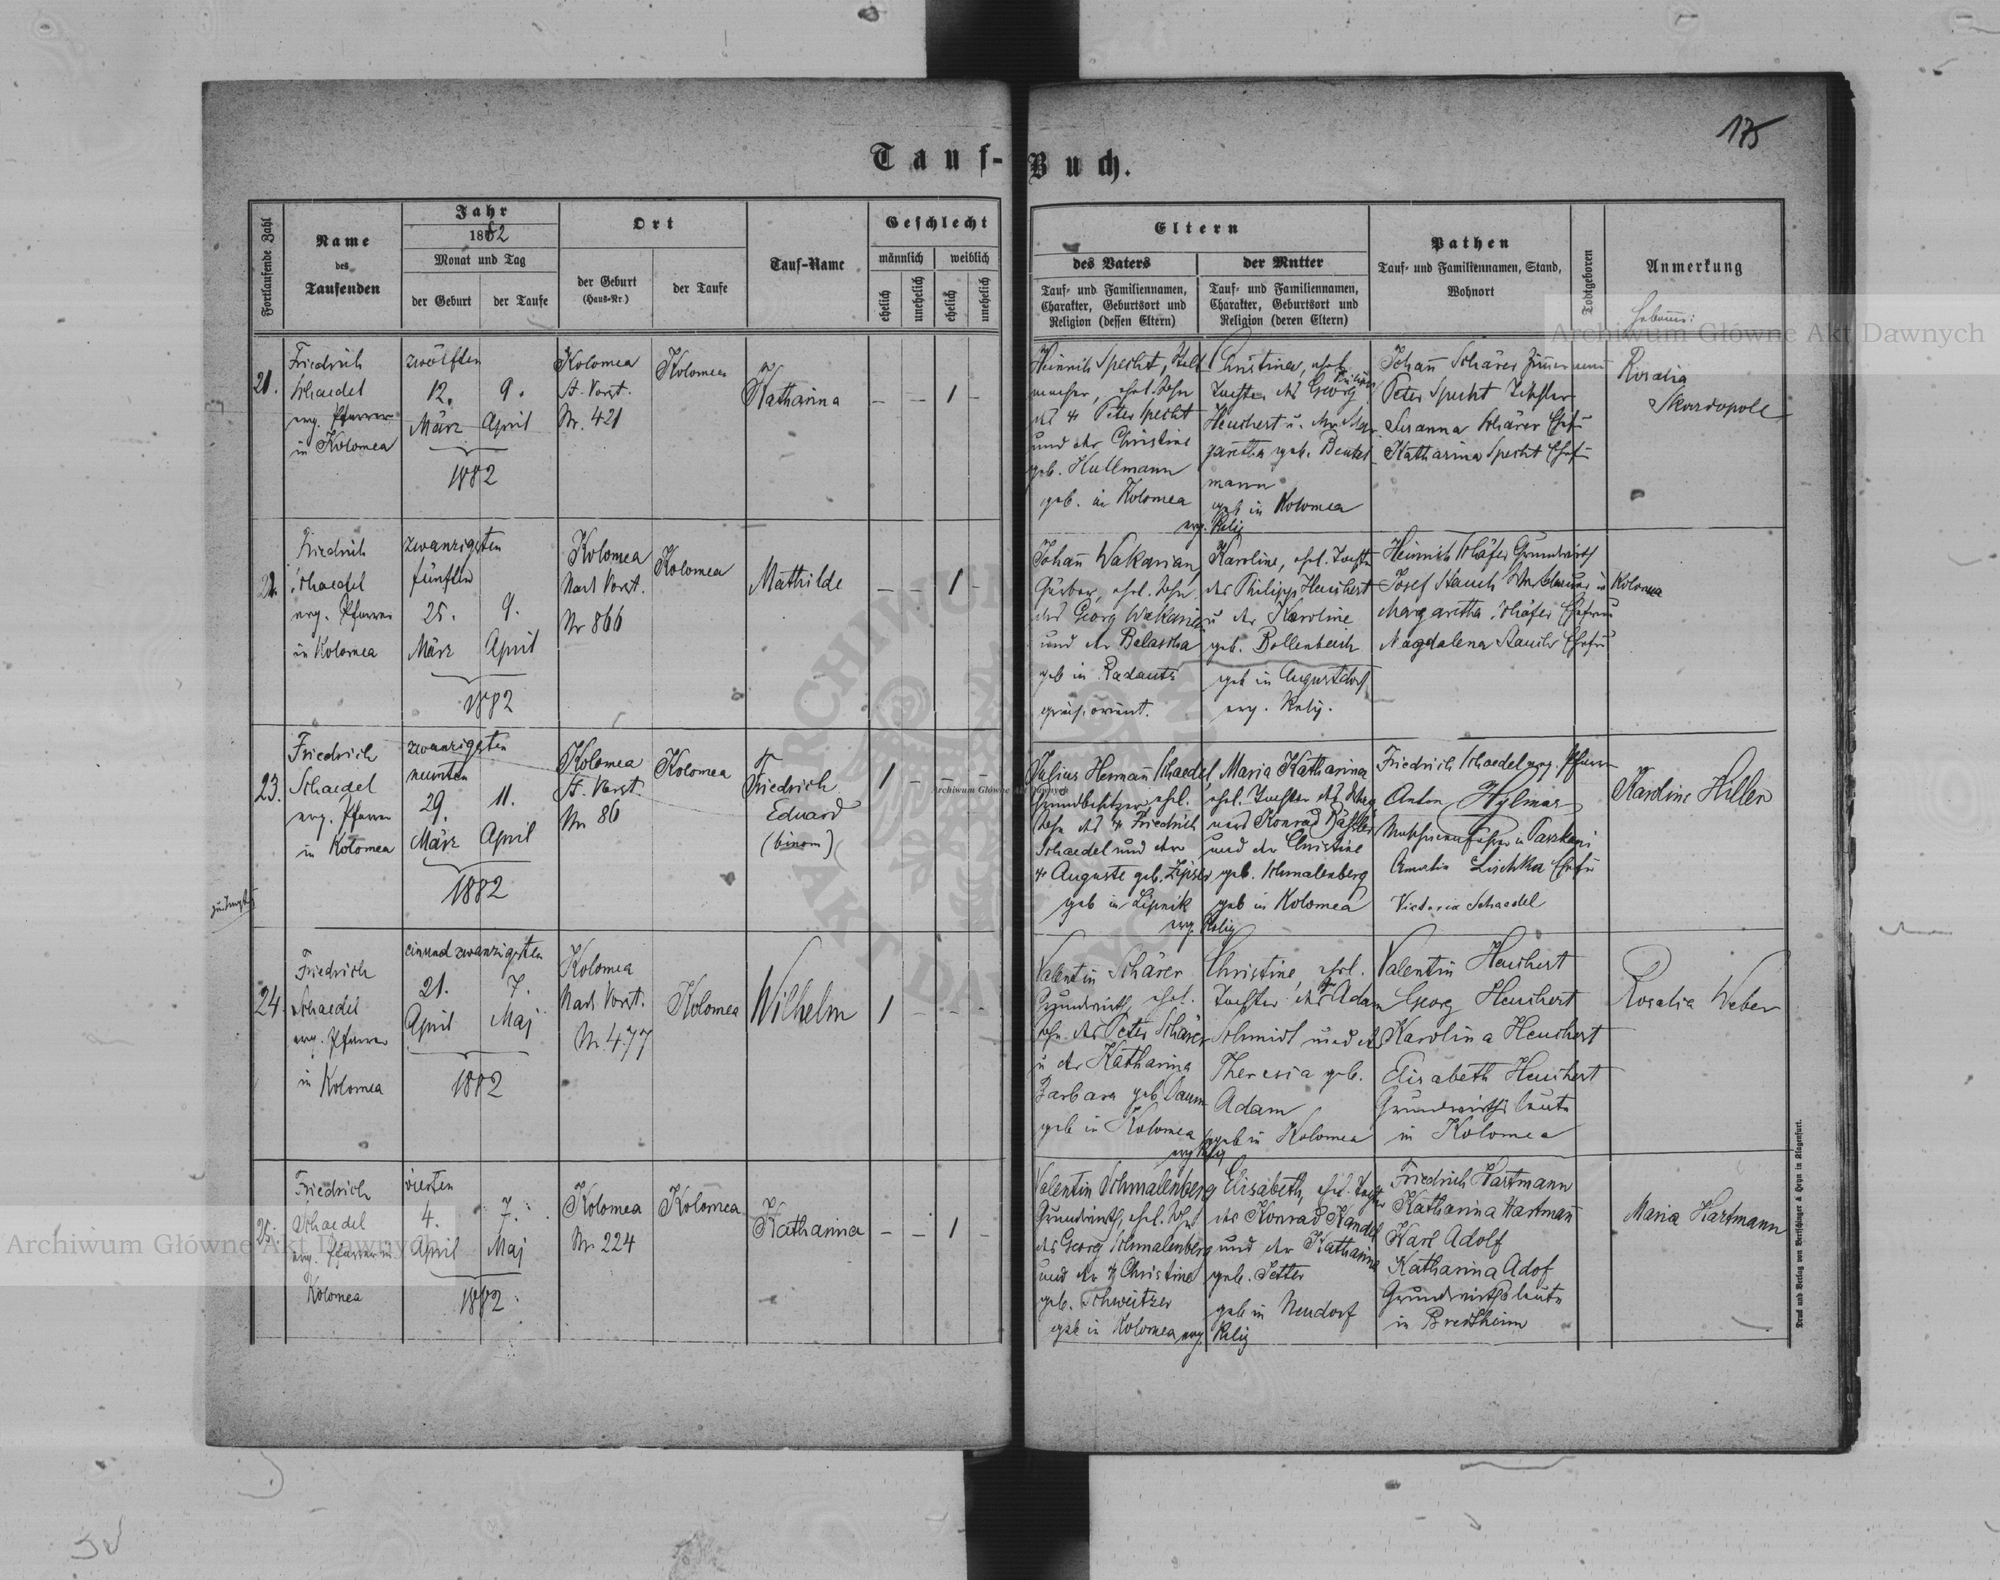 175
Tauf-Buch.
Fortlaufende Zahl
Name
des
Taufenden
Jahr
1882
Monat und Tag
der Geburt
der Taufe
Ort
der Geburt
(Haus-Nr.)
der Taufe
Tauf-Name
Geschlecht
männlich
weiblich
ehelich
unehelich
ehelich
unehelich
Eltern
des Vaters
Tauf- und Familiennamen,
Charakter, Geburtsort und
Religion (dessen Eltern)
der Mutter
Tauf- und Familiennamen,
Charakter, Geburtsort und
Religion (deren Eltern)
Pathen
Tauf- und Familiennamen, Stand,
Wohnort
Todtgeboren
Anmerkung
21.
Friedrich
Schaedel
evg. Pfarrer
in Kolomea
zwölften
12.
März
9.
April
1882
Kolomea
St. Vorst.
Nr. 421
Kolomea
Katharina
— — 1 -
Heinrich Specht,
macher, ehel. Sohn
des Peter Specht
und der Christine
geb. Hullmann
geb. in Kolomea
Christine, ehel.
Tochter des Georg
Heuchert u.
garetha geb.
mann
geb in Kolomea
evg. Relig
Johann Schärer
Peter Specht
Susanna Schärer
Katharina Specht
Rosalia
Skordopole
22.
Friedrich
Schaedel
evg. Pfarrer
in Kolomea
zwanzigsten
fünften
25.
März
9.
April
1882
Kolomea
Nad. Vorst.
Nr 866
Kolomea
Mathilde
— — 1 -
Johann Wakarian,
Gärber, ehel. Sohn
des Georg
und der
geb in Radautz
Karoline, ehel. Tochter
des Philipp Heuchert
u der Karoline
geb. Bollenbach
geb in Augustdorf
evg. Relig.
Heinrich Schäfer Grundwirth
Josef Stauch
in Kolomea
Margaretha Schäfer
Magdalena Stauch
23.
Friedrich
Schaedel
evg. Pfarrer
in Kolomea
zwanzigsten
neunten
29.
März
11.
April
1882
Kolomea
St. Vorst.
Nr 86
Kolomea
Friedrich
Eduard
(binom)
1 - — -
Julius Hermann Schaedel,
Grundbesitzer, ehel.
Sohn des Friedrich
Schaedel und der
Auguste geb. Zipser
geb in Lipnik
Maria Katharina
ehel. Tochter des
Konrad
und der Christine
geb. Schmalenberg
geb in Kolomea
evg. Relig
Friedrich Schaedel evg. Pfarrer
Anton Hylmar
Amalia Lischka
Victoria Schaedel
Karoline Hiller
24.
Friedrich
Schaedel
evg. Pfarrer
in Kolomea
einundzwanzigsten
21.
April
7.
Maj
1882
Kolomea
Nad. Vorst.
Nr. 477
Kolomea
Wilhelm
1 - - -
Valentin Schärer
Grundwirth, ehel.
Sohn des Peter Schärer
u der Katharina
Barbara geb Daum
geb in Kolomea
Christine, ehel.
Tochter des Adam
Schmidt und der
Theresia geb.
Adam
geb in Kolomea
evg Relig
Valentin Heuchert
Georg Heuchert
Karolina Heuchert
Elisabeth Heuchert
Grundwirthsleute
in Kolomea
Rosalia Weber
25.
Friedrich
Schaedel
evg. Pfarrer in
Kolomea
vierten
4.
April
7.
Maj
1882
Kolomea
Nr 224
Kolomea
Katharina
- - 1 -
Valentin Schmalenberg
Grundwirth, ehel. Sohn
des Georg Schmalenberg
und der Christine
geb. Schweitzer
geb in Kolomea
Elisabeth, ehel. Tochter
des Konrad Kandel
und der Katharina
geb. Jetter
geb in Neudorf
evg. Relig
Friedrich Hartmann
Katharina Hartmann
Karl Adolf
Katharina Adof
Grundwirthsleute
in Bredtheim
Maria Hartmann
Druck und Verlag von Bertschinger & Heyn in Klagenfurt.
Archiwum Główne Akt Dawnych
Archiwum Główne Akt Dawnych
Archiwum Główne Akt Dawnych